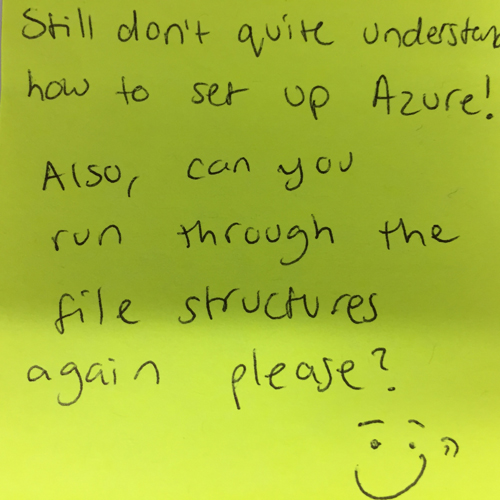 Still don't quite understan
how to set up Azure!
Also, can you
run through the
file structures
again please?